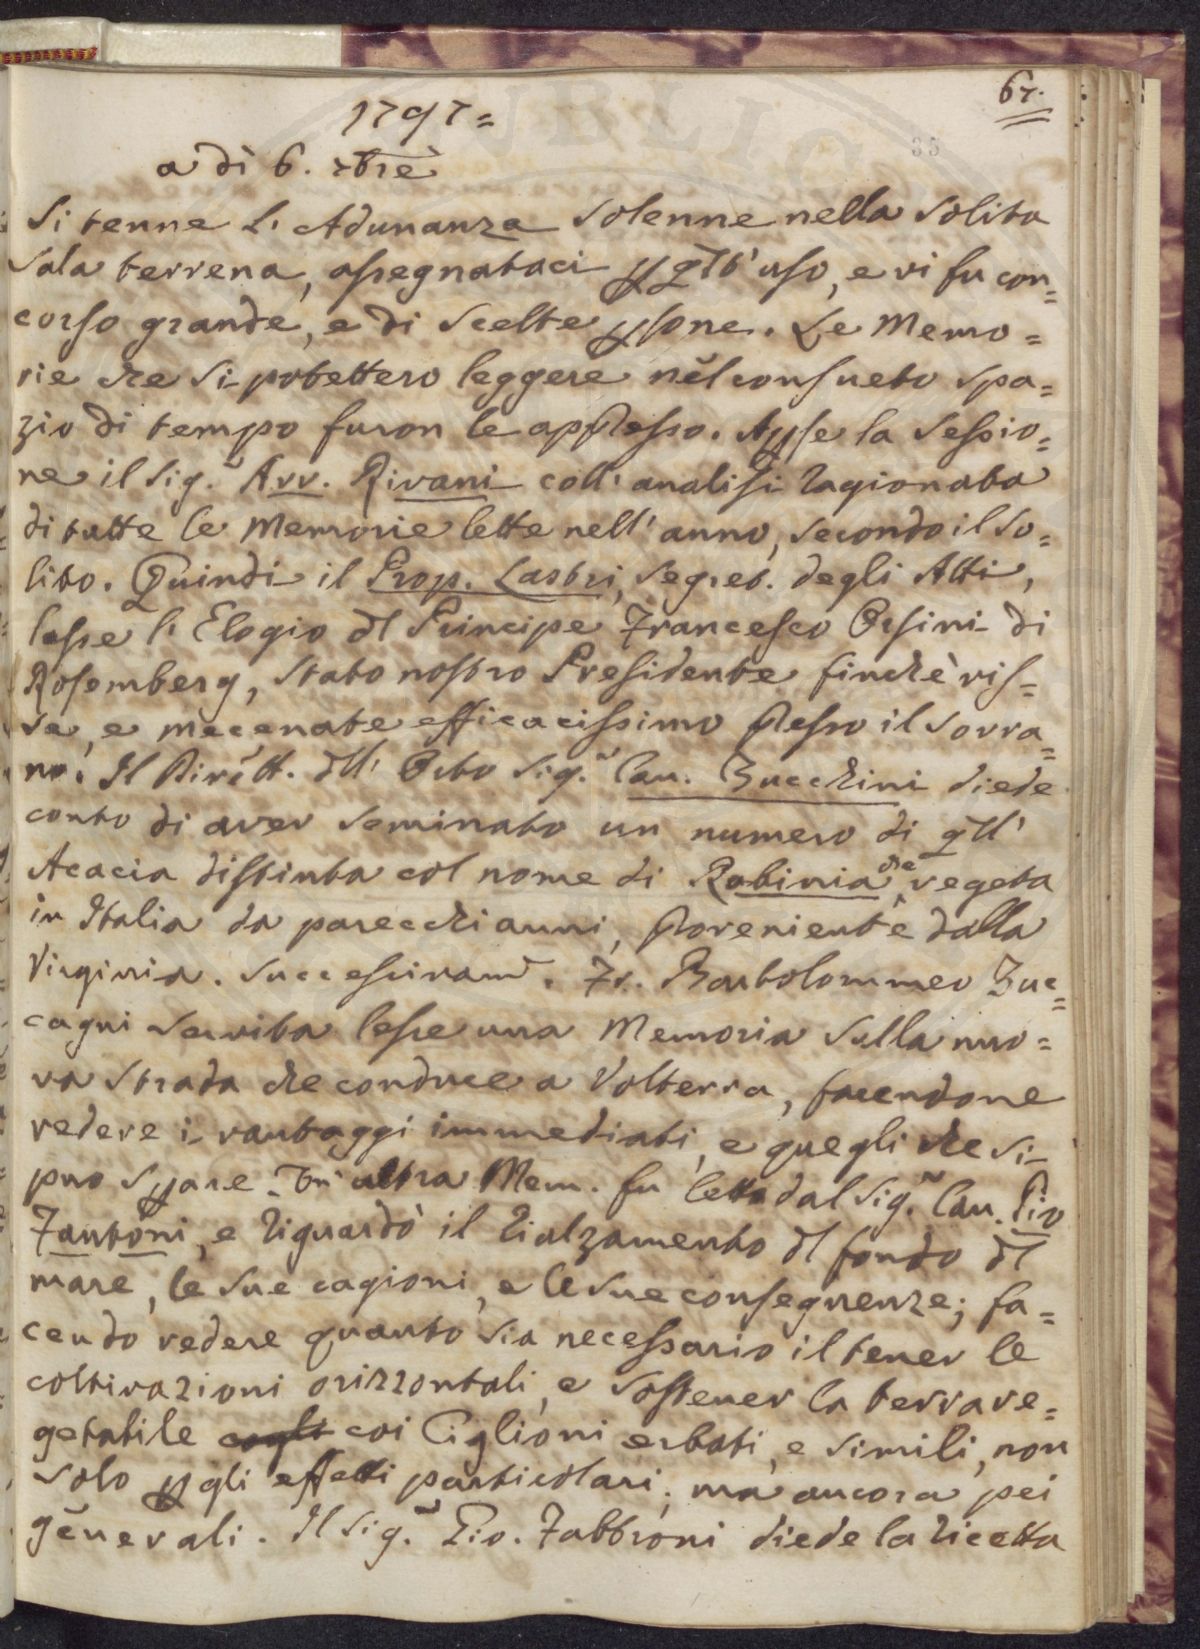 67.
35
1797=
a dì 6. 7brè
Si tenne l'Adunanza Solenne nella Solita
Sala terrena, assegnataci p qst'uso, e vi fu con=
corso grande, e di Scelte psone. Le Memo=
rie che si potettero leggere nel consueto spa=
zio di tempo furon le appresso. Apse la Sessio=
ne il Sig. Avv. Rivani coll'analisi ragionata
di tutte le Memorie lette nell'anno, secondo il so=
lito. Quindi il Prop. Lastri, Segret. degli Atti,
lesse l'Elogio dl Principe Francesco Orsini di
Rosemberg, Stato nostro Presidente finchè vis=
se, e mecenate efficacissimo presso il Sovra=
no. Il Dirett. dll'Orto Sig. Cav. Zucchini diede
conto di aver seminato un numero di qll'
Acacia distinta col nome di Robinia che vegeta
in Italia da parecchi anni, proveniente dalla
Virginia. Successivamte. Fr. Bartolommeo Zuc=
cagni Servita lesse una Memoria sulla nuo=
va Strada che conduce a Volterra, facendone
vedere i vantaggi immediati, e quegli che si
puo spare. Un'altra Mem. fu letta dal Sig. Cav. Pio
Fantoni, e riguardò il rialzamento dl fondo dl
mare, le sue cagioni, e le sue conseguenze; fa=
cendo vedere quanto sia necessario il tener le
coltivazioni orizzontali, e sostener la terra ve=
getabile cogli coi Ciglioni erbati, e simili, non
solo p gli effetti particolari, ma ancora pei
generali. Il Sig. Gio. Fabbroni diede la ricetta